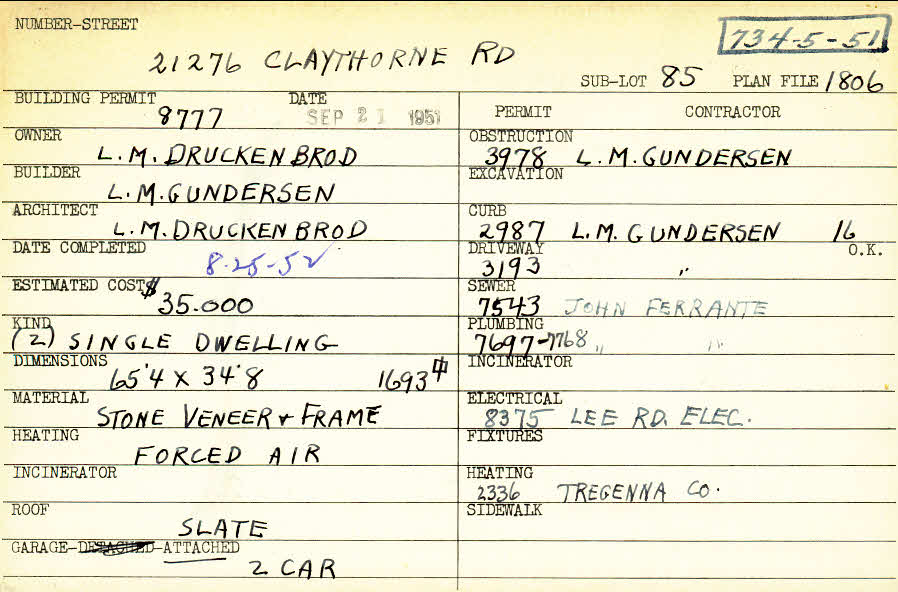 NUMBER-STREET
734-5-51
21276 CLAYTHORNE RD
SUB-LOT 85 PLAN FILE 1806
BUILDING PERMIT DATE
8777 SEP 21 1951
OWNER
L.M. DRUCKENBROD
BUILDER
L.M. GUNDERSEN
ARCHITECT
L.M. DRUCKENBROD
DATE COMPLETED
8-25-52
ESTIMATED COST $
35.000
KIND
(2) SINGLE DWELLING
DIMENSIONS
65'4 X 34'8 1693
MATERIAL
STONE VENEER + FRAME
HEATING
FORCED AIR
INCINERATOR
ROOF
SLATE
GARAGE-DETACHED-ATTACHED
2 CAR
PERMIT CONTRACTOR
OBSTRUCTION
3978 L.M. GUNDERSEN
EXCAVATION
CURB
2987 L.M. GUNDERSEN 16
DRIVEWAY O.K.
3193 "
SEWER
7543 JOHN FERRANTE
PLUMBING
7697-7768 " "
INCINERATOR
ELECTRICAL
8375 LEE RD. ELEC.
FIXTURES
HEATING
2336 TREGENNA CO.
SIDEWALK